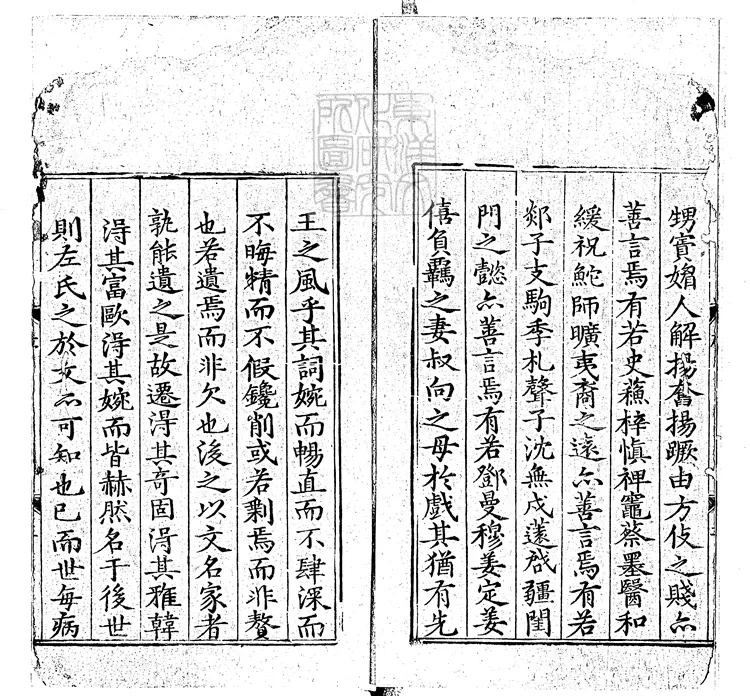 甥賓媚人解揚奮揚蹶由方伎之賤亦
善言焉有若史蘇梓愼裨竈蔡墨醫和
緩祝鮀師曠夷裔之遠亦善言焉有若
郯子支駒季札聲子沈無戌薳啟疆閨
門之懿亦善言焉有若鄧曼穆姜定姜
僖負羈之妻叔向之母於戲其猶有先
王之風乎其詞婉而暢直而不肆深而
不晦精而不假鑱削或若剩焉而非贅
也若遺焉而非欠也後之以文名家者
孰能遺之是故遷得其奇固得其雅韓
得其富歐得其婉而皆赫然名于後世
則左氏之於文亦可知也已而世每病